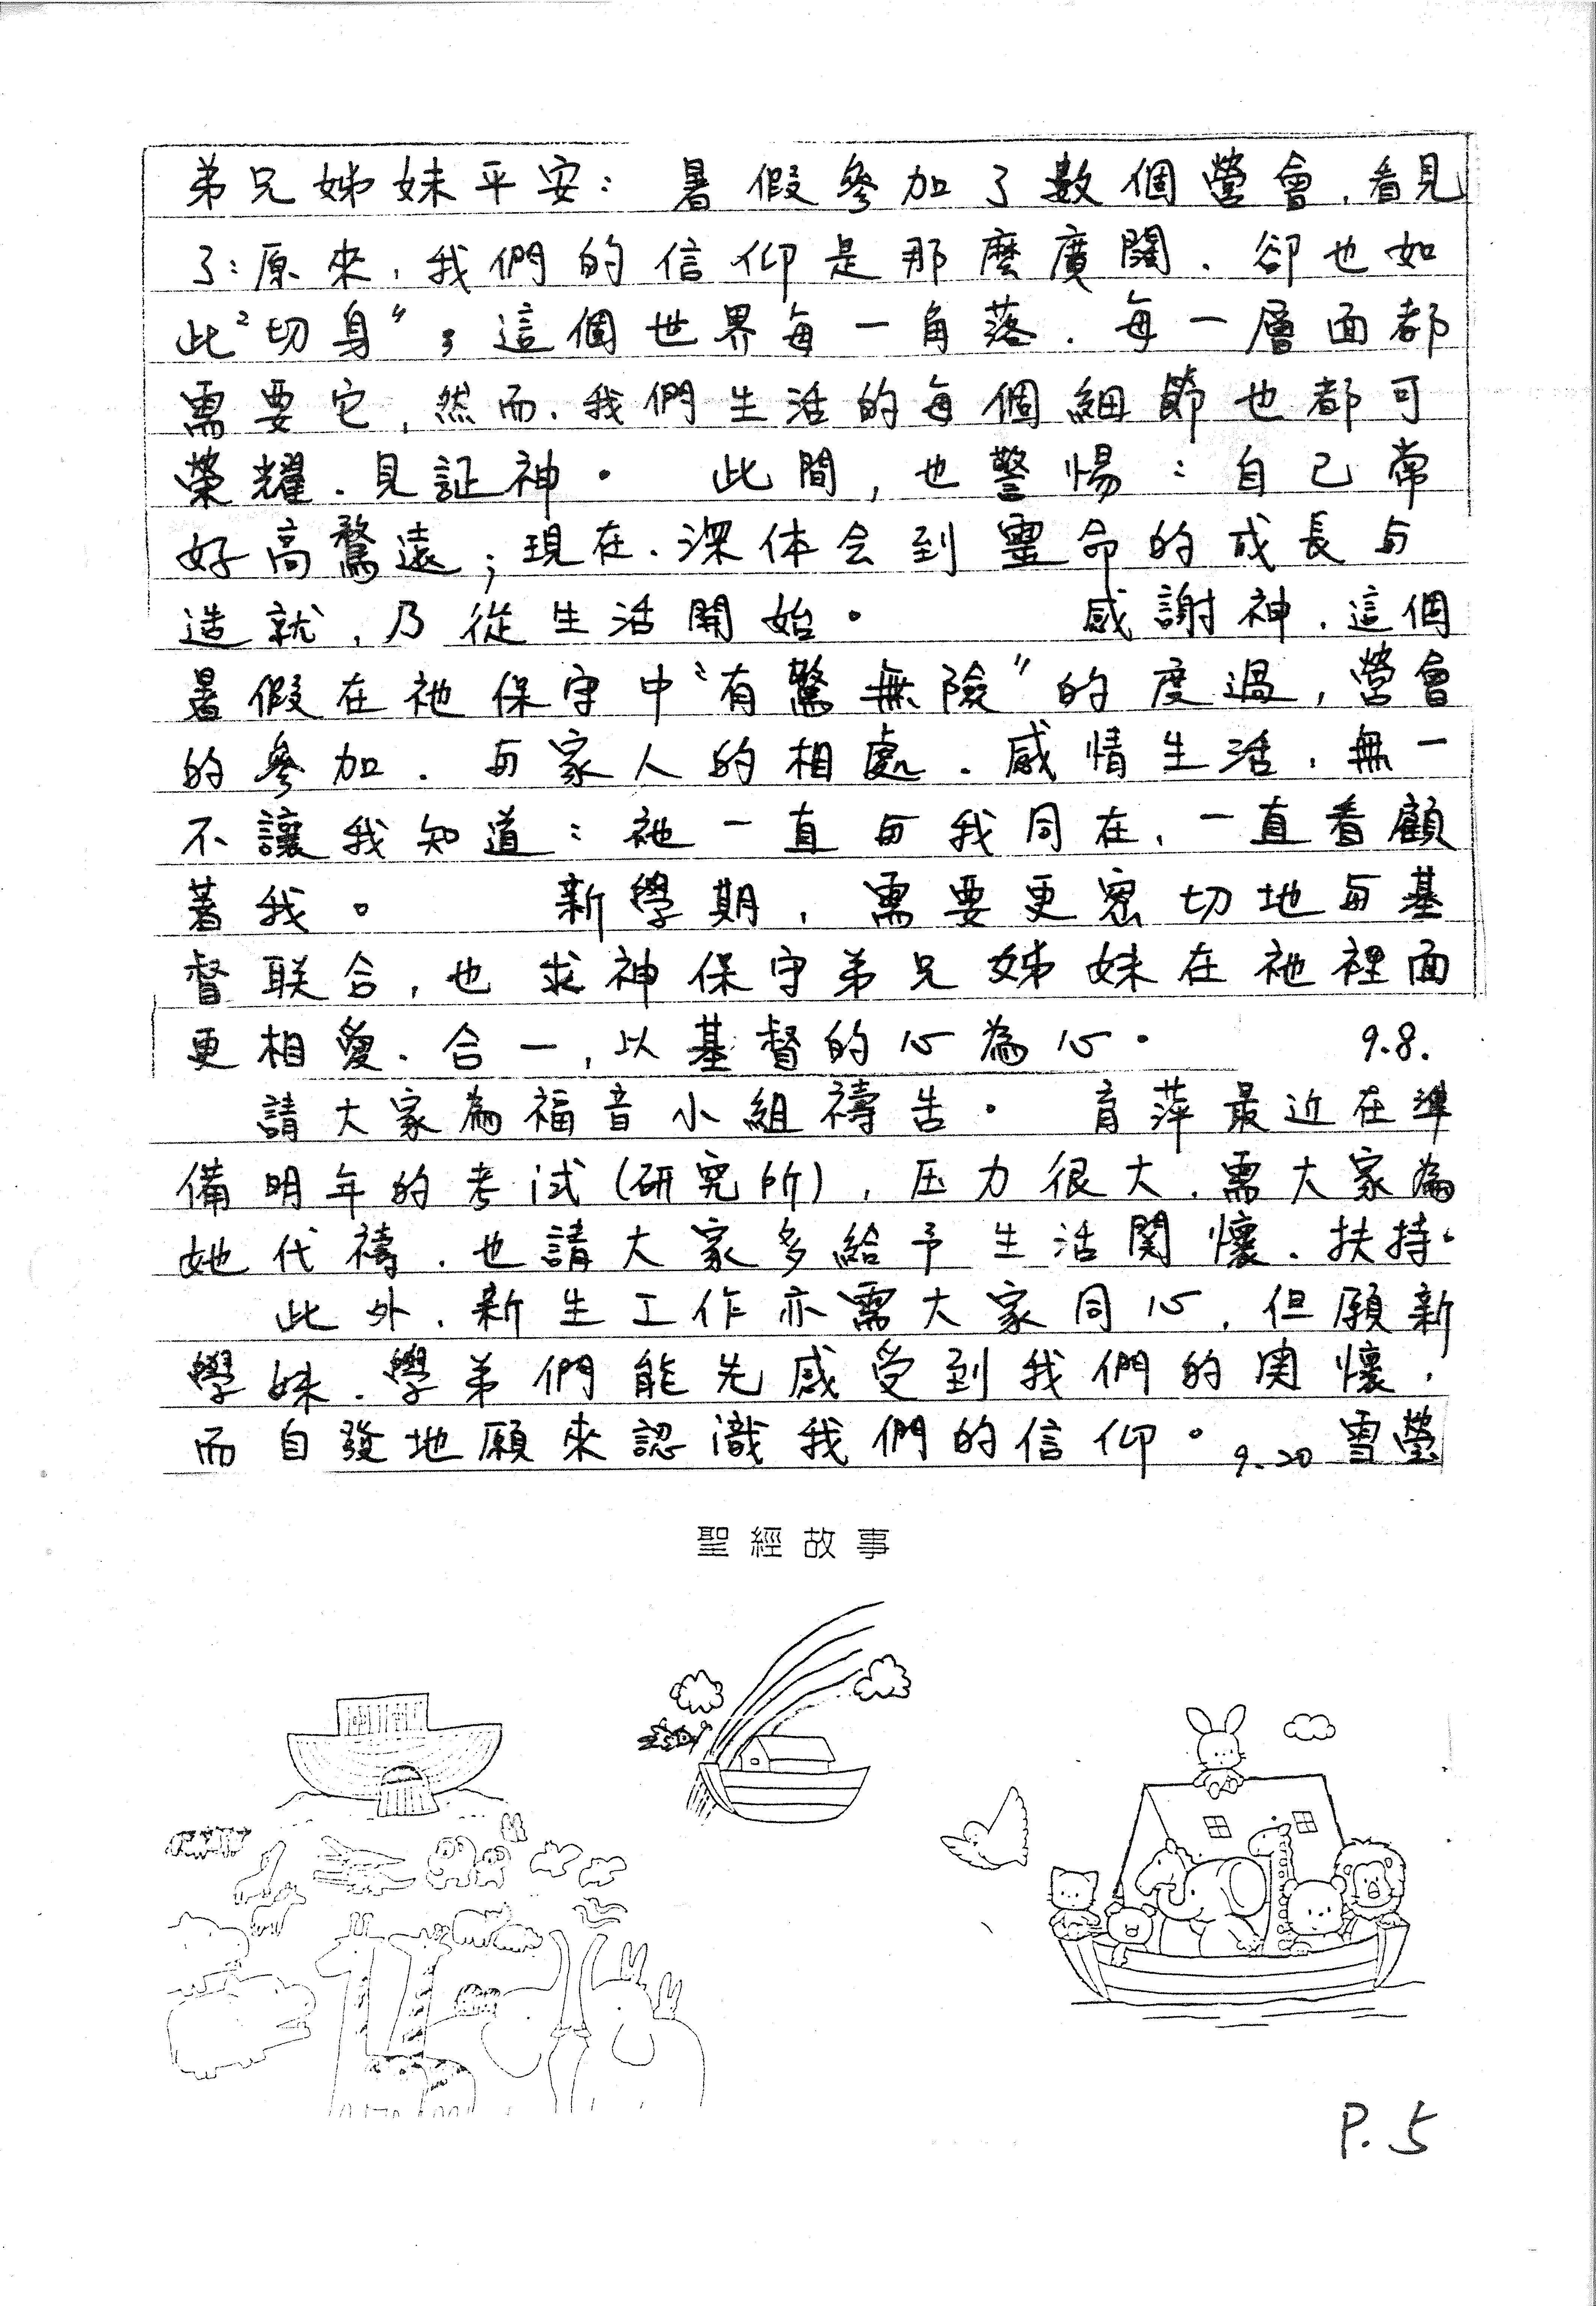 弟兄姊妹平安：暑假參加了數個營會，看見
了：原來，我們的信仰是那麼廣闊、卻也如
此"切身"；這個世界每一角落、每一層面都
需要它，然而、我們生活的每個細節也都可
榮耀、見証神。 此間，也警惕：自己常
好高騖遠；現在、深体会到靈命的成長与
造就，乃從生活開始。 感謝神，這個
暑假在祂保守中"有驚無險"的度過，營會
的參加、与家人的相處、感情生活，無一
不讓我知道：祂一直与我同在，一直看顧
著我。 新學期，需要更密切地与基
督联合，也求神保守弟兄姊妹在祂裡面
更相愛、合一，以基督的心為心。 9.8.
請大家為福音小組禱告。 育萍最近在準
備明年的考試(研究所)，压力很大，需大家為
她代禱，也請大家多給予生活関懷、扶持。
此外，新生工作亦需大家同心，但願新
學妹、學弟們能先感受到我們的関懷，
而自發地願來認識我們的信仰。 9.20 雪瑩
聖經故事
P.5